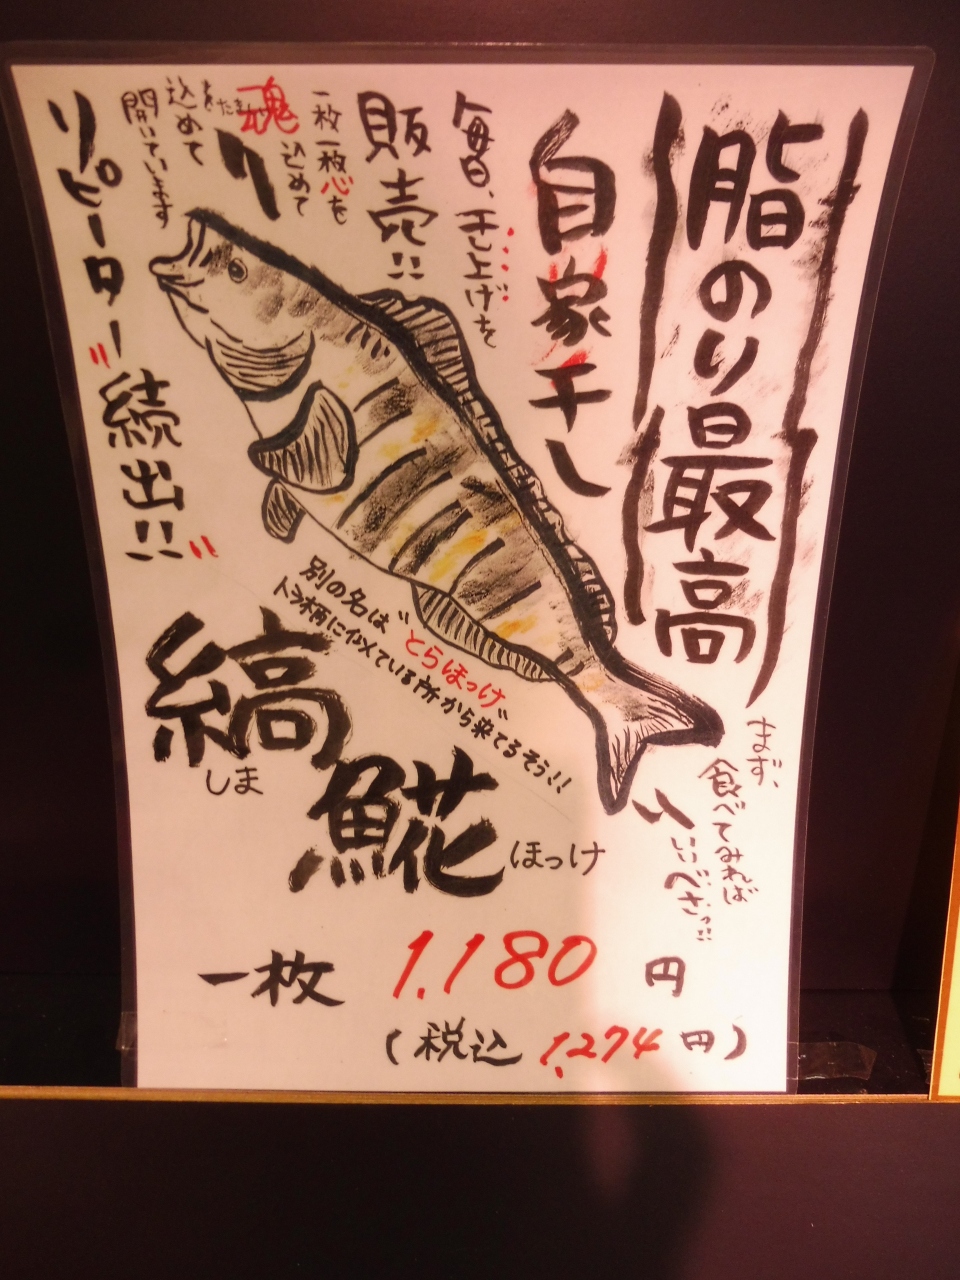 脂のり最高
自家干し
毎日、干し上げを
販売!!
一枚一枚心を
込めて
魂
たましい
込めて
開いています
リピーター続出!!
別の名は〝とらほっけ〟
トラ柄に似ている所から来てるそう!!
縞
しま
𩸽
ほっけ
まず、
食べてみれば
いいべさっ!!
一枚 1.180 円
(税込 1.274 円)